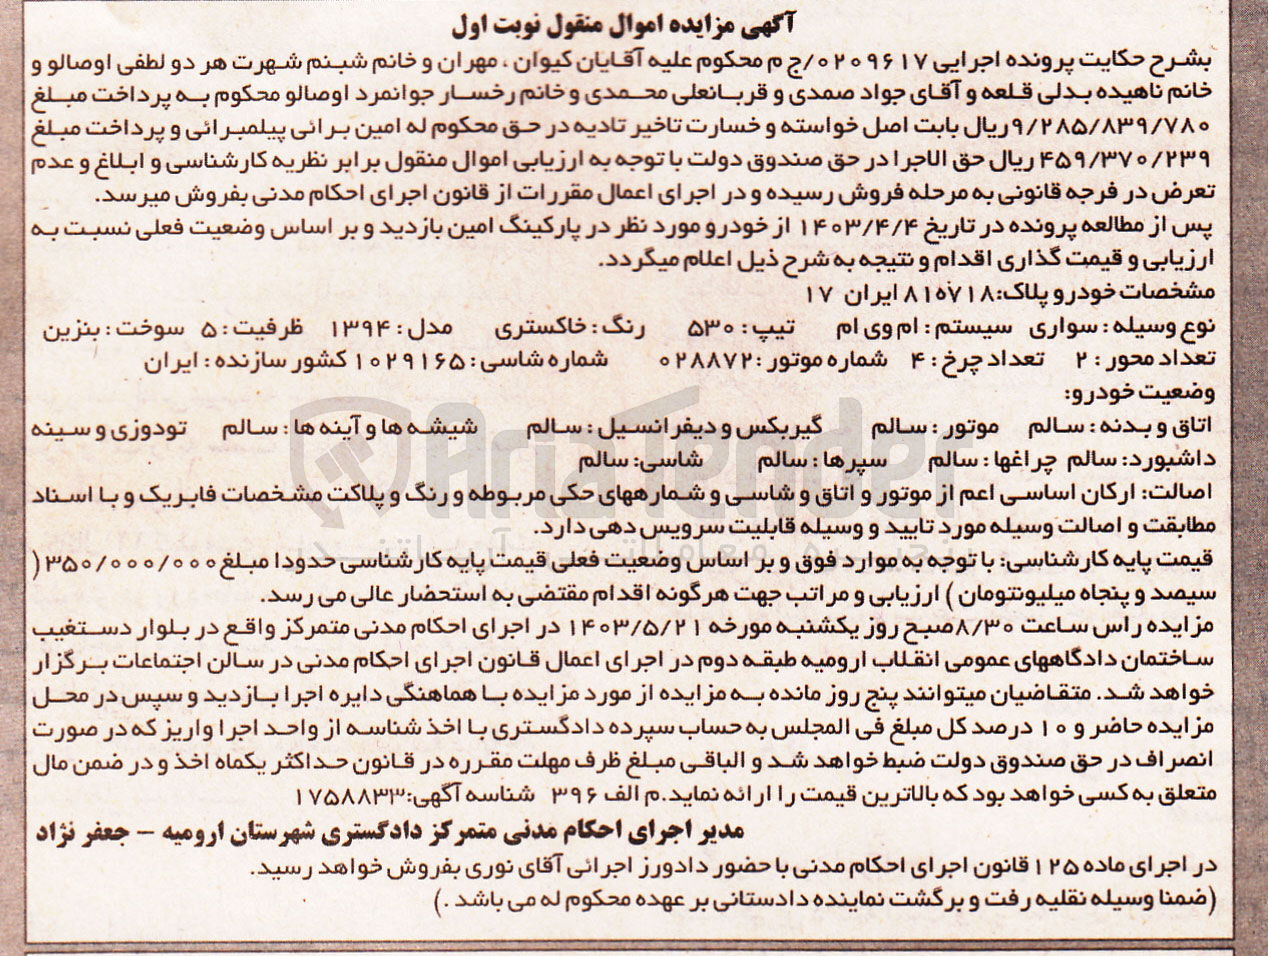 آگهی مزایده اموال منقول نوبت اول
بشرح حکایت پرونده اجرایی ۰۲۰۹۶۱۷/ج م محکوم علیه آقایان کیوان ، مهران و خانم شبنم شهرت هر دو لطفی اوصالو و
خانم ناهیده بدلی قلعه و آقای جواد صمدی و قربانعلی محمدی و خانم رخسار جوانمرد اوصالو محکوم به پرداخت مبلغ
۹/۲۸۵/۸۳۹/۷۸۰ ریال بابت اصل خواسته و خسارت تاخیر تادیه در حق محکوم له امین برائی پیلمبرائی و پرداخت مبلغ
۴۵۹/۳۷۰/۲۳۹ ریال حق الاجرا در حق صندوق دولت با توجه به ارزیابی اموال منقول برابر نظریه کارشناسی و ابلاغ و عدم
تعرض در فرجه قانونی به مرحله فروش رسیده و در اجرای اعمال مقررات از قانون اجرای احکام مدنی بفروش میرسد.
پس از مطالعه پرونده در تاریخ ۱۴۰۳/۴/۴ از خودرو مورد نظر در پارکینگ امین بازدید و بر اساس وضعیت فعلی نسبت به
ارزیابی و قیمت گذاری اقدام و نتیجه به شرح ذیل اعلام میگردد.
مشخصات خودرو پلاک:۸۱۵۷۱۸ ایران ۱۷
نوع وسیله : سواری سیستم : ام وی ام تیپ : ۵۳۰ رنگ : خاکستری مدل : ۱۳۹۴ ظرفیت : ۵ سوخت : بنزین
تعداد محور : ۲ تعداد چرخ : ۴ شماره موتور : ۰۲۸۸۷۲ شماره شاسی : ۱۰۲۹۱۶۵ کشور سازنده : ایران
وضعیت خودرو:
اتاق و بدنه : سالم موتور : سالم گیربکس و دیفرانسیل : سالم شیشه ها و آینه ها : سالم تودوزی و سینه
داشبورد: سالم چراغها : سالم سپرها : سالم شاسی: سالم
اصالت: ارکان اساسی اعم از موتور و اتاق و شاسی و شمارههای حکی مربوطه و رنگ و پلاکت مشخصات فابریک و با اسناد
مطابقت و اصالت وسیله مورد تایید و وسیله قابلیت سرویس دهی دارد.
قیمت پایه کارشناسی: با توجه به موارد فوق و بر اساس وضعیت فعلی قیمت پایه کارشناسی حدودا مبلغ ۳۵۰/۰۰۰/۰۰۰ (
سیصد و پنجاه میلیونتومان ) ارزیابی و مراتب جهت هرگونه اقدام مقتضی به استحضار عالی می رسد.
مزایده راس ساعت ۸/۳۰ صبح روز یکشنبه مورخه ۱۴۰۳/۵/۲۱ در اجرای احکام مدنی متمرکز واقع در بلوار دستغیب
ساختمان دادگاههای عمومی انقلاب ارومیه طبقه دوم در اجرای اعمال قانون اجرای احکام مدنی در سالن اجتماعات برگزار
خواهد شد. متقاضیان میتوانند پنج روز مانده به مزایده از مورد مزایده با هماهنگی دایره اجرا بازدید و سپس در محل
مزایده حاضر و ۱۰ درصد کل مبلغ فی المجلس به حساب سپرده دادگستری با اخذ شناسه از واحد اجرا واریز که در صورت
انصراف در حق صندوق دولت ضبط خواهد شد و الباقی مبلغ ظرف مهلت مقرره در قانون حداکثر یکماه اخذ و در ضمن مال
متعلق به کسی خواهد بود که بالاترین قیمت را ارائه نماید.م الف ۳۹۶ شناسه آگهی:۱۷۵۸۸۳۳
مدیر اجرای احکام مدنی متمرکز دادگستری شهرستان ارومیه – جعفر نژاد
در اجرای ماده ۱۲۵ قانون اجرای احکام مدنی با حضور دادورز اجرائی آقای نوری بفروش خواهد رسید.
(ضمنا وسیله نقلیه رفت و برگشت نماینده دادستانی بر عهده محکوم له می باشد .)
AriaTender